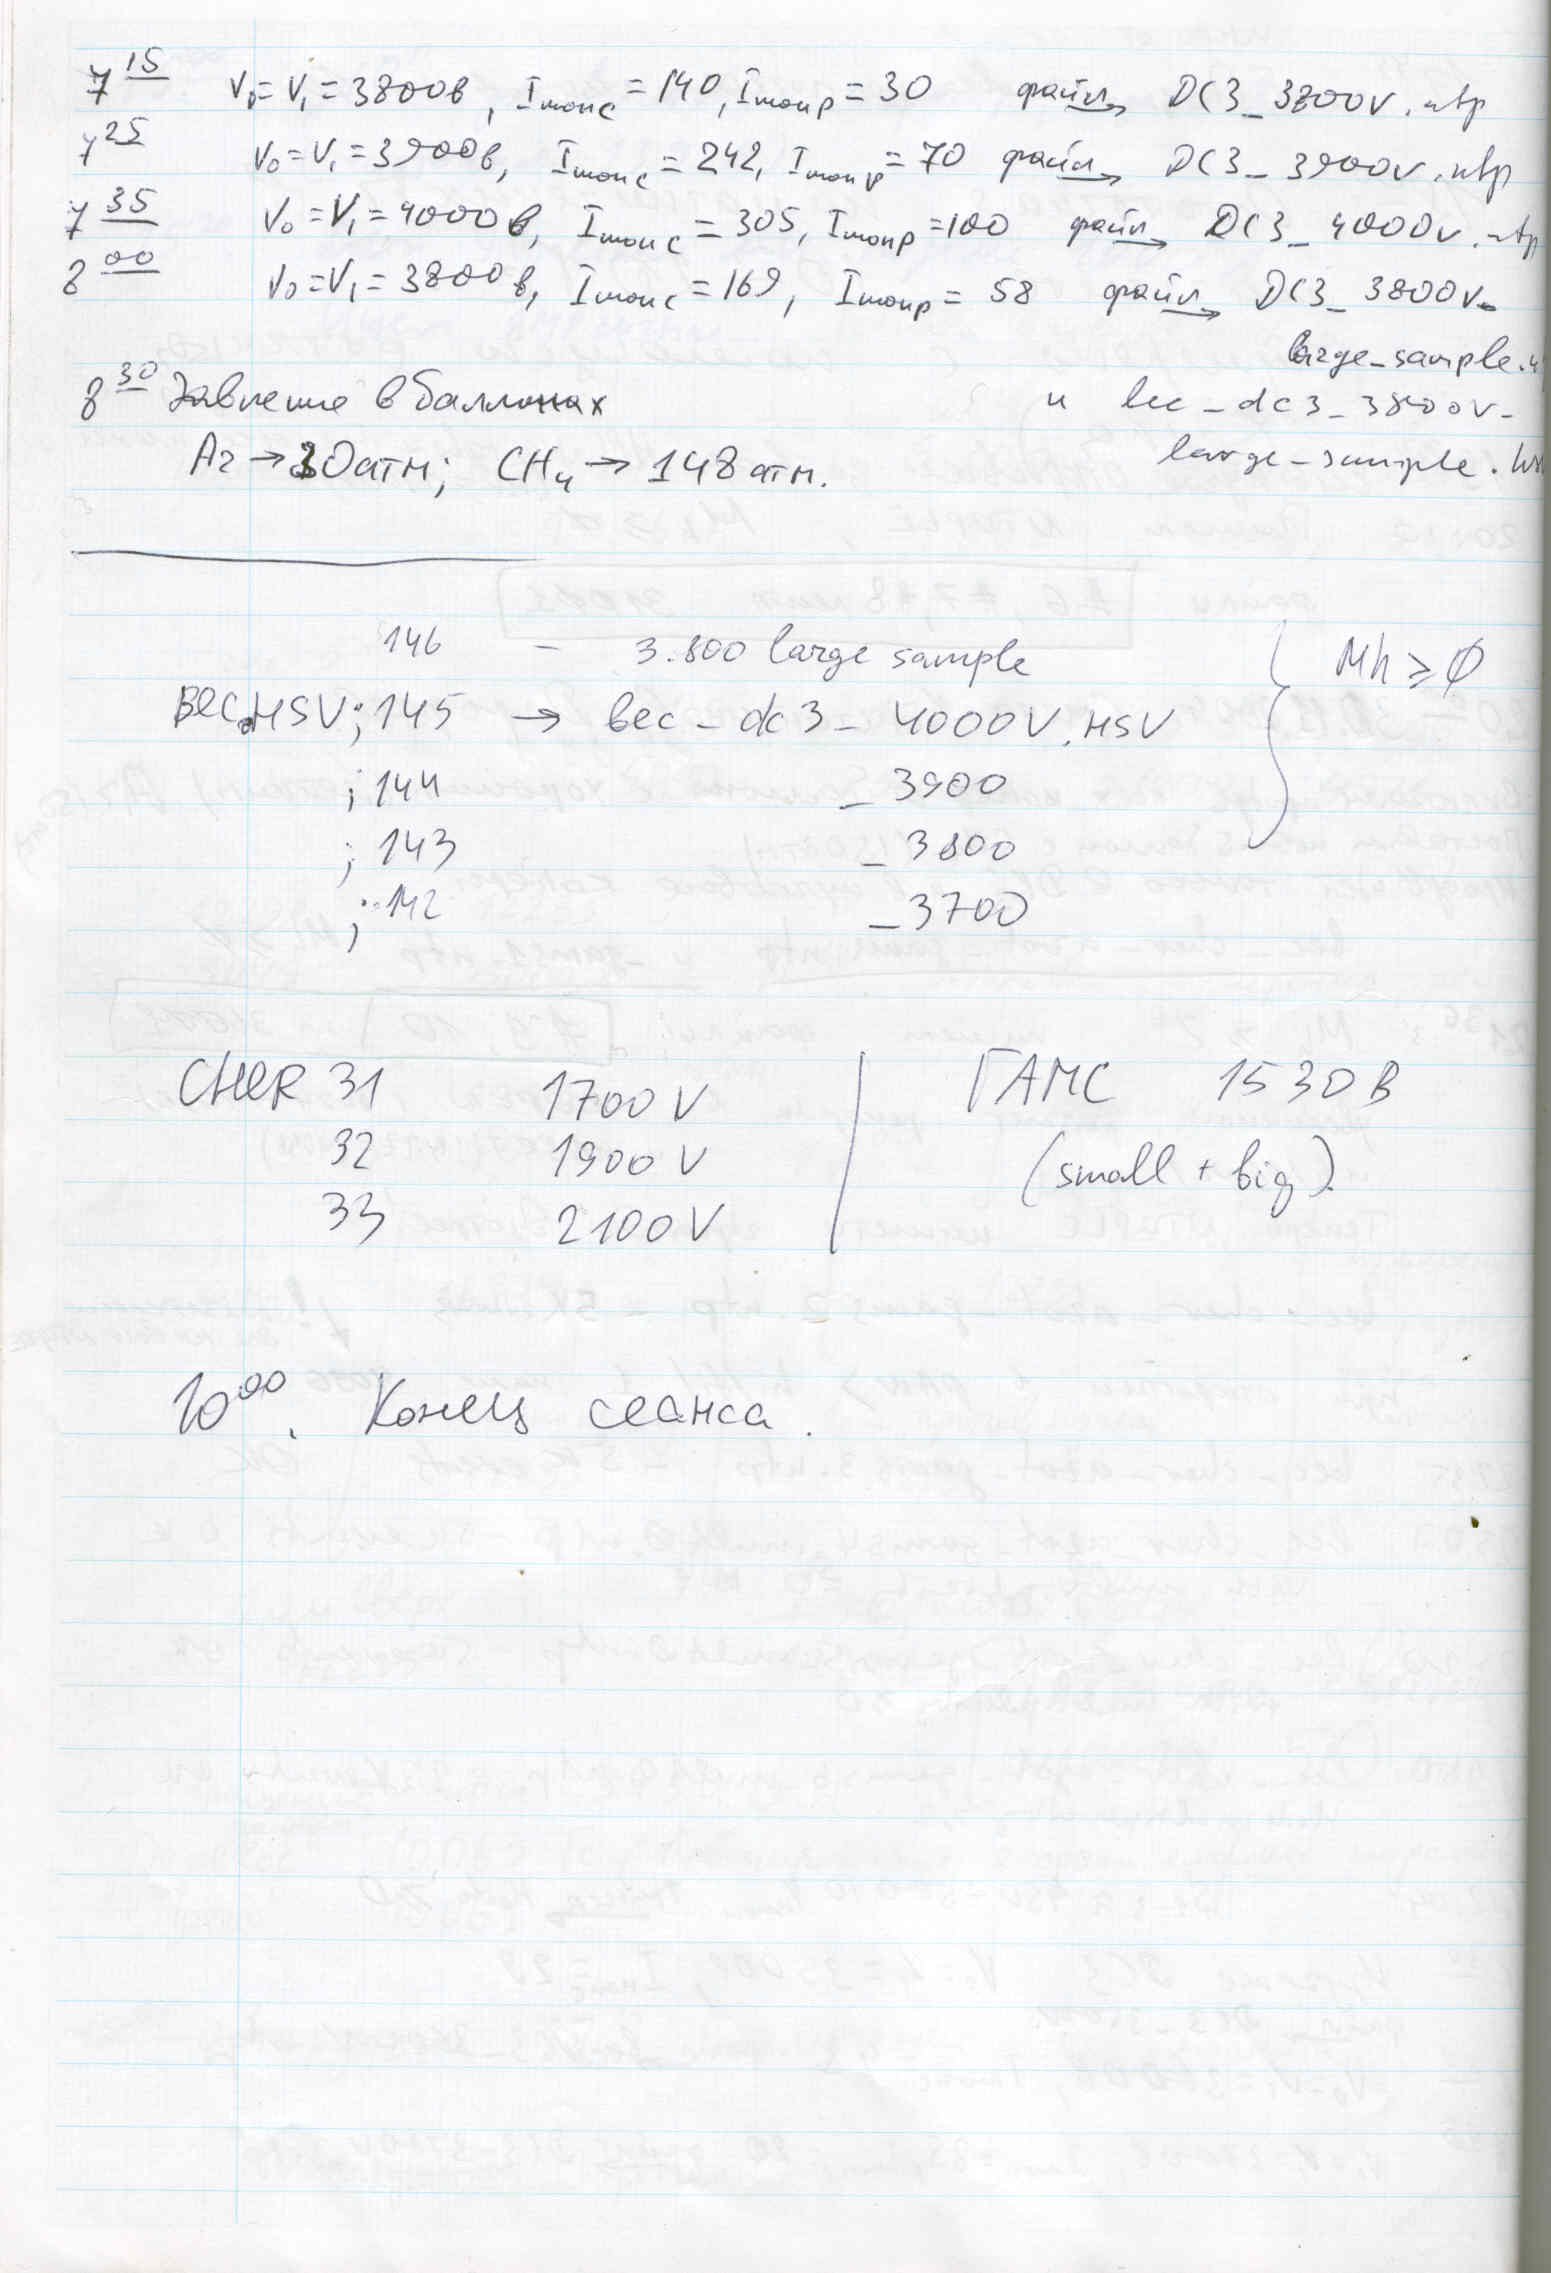 7 15 V₀=V₁=3800в, Iмонс=140, Iмонр=30 файл→ DC3_3800V.ntp
7 25 V₀=V₁=3900в, Iмонс=242, Iмонр=70 файл→ DC3_3900V.ntp
7 35 V₀=V₁=4000в, Iмонс=305, Iмонр=100 файл→ DC3_4000V.ntp
8 00 V₀=V₁=3800в, Iмонс=169, Iмонр=58 файл→ DC3_3800V_
large_sample.
8 30 Давление в баллонах
и bec_dc3_3800V_
large_sample.
Ar → 30атм; CH₄ → 148 атм.
146 – 3.800 large sample
Mh ≥ Ø
BEC.HSV; 145 → bec_dc3_4000V.HSV
; 144 _3900
; 143 _3800
; 142 _3700
CHER 31 1700V
ГАМС 1530В
32 1900V
(small + big).
33 2100V
10 00. Конец сеанса.